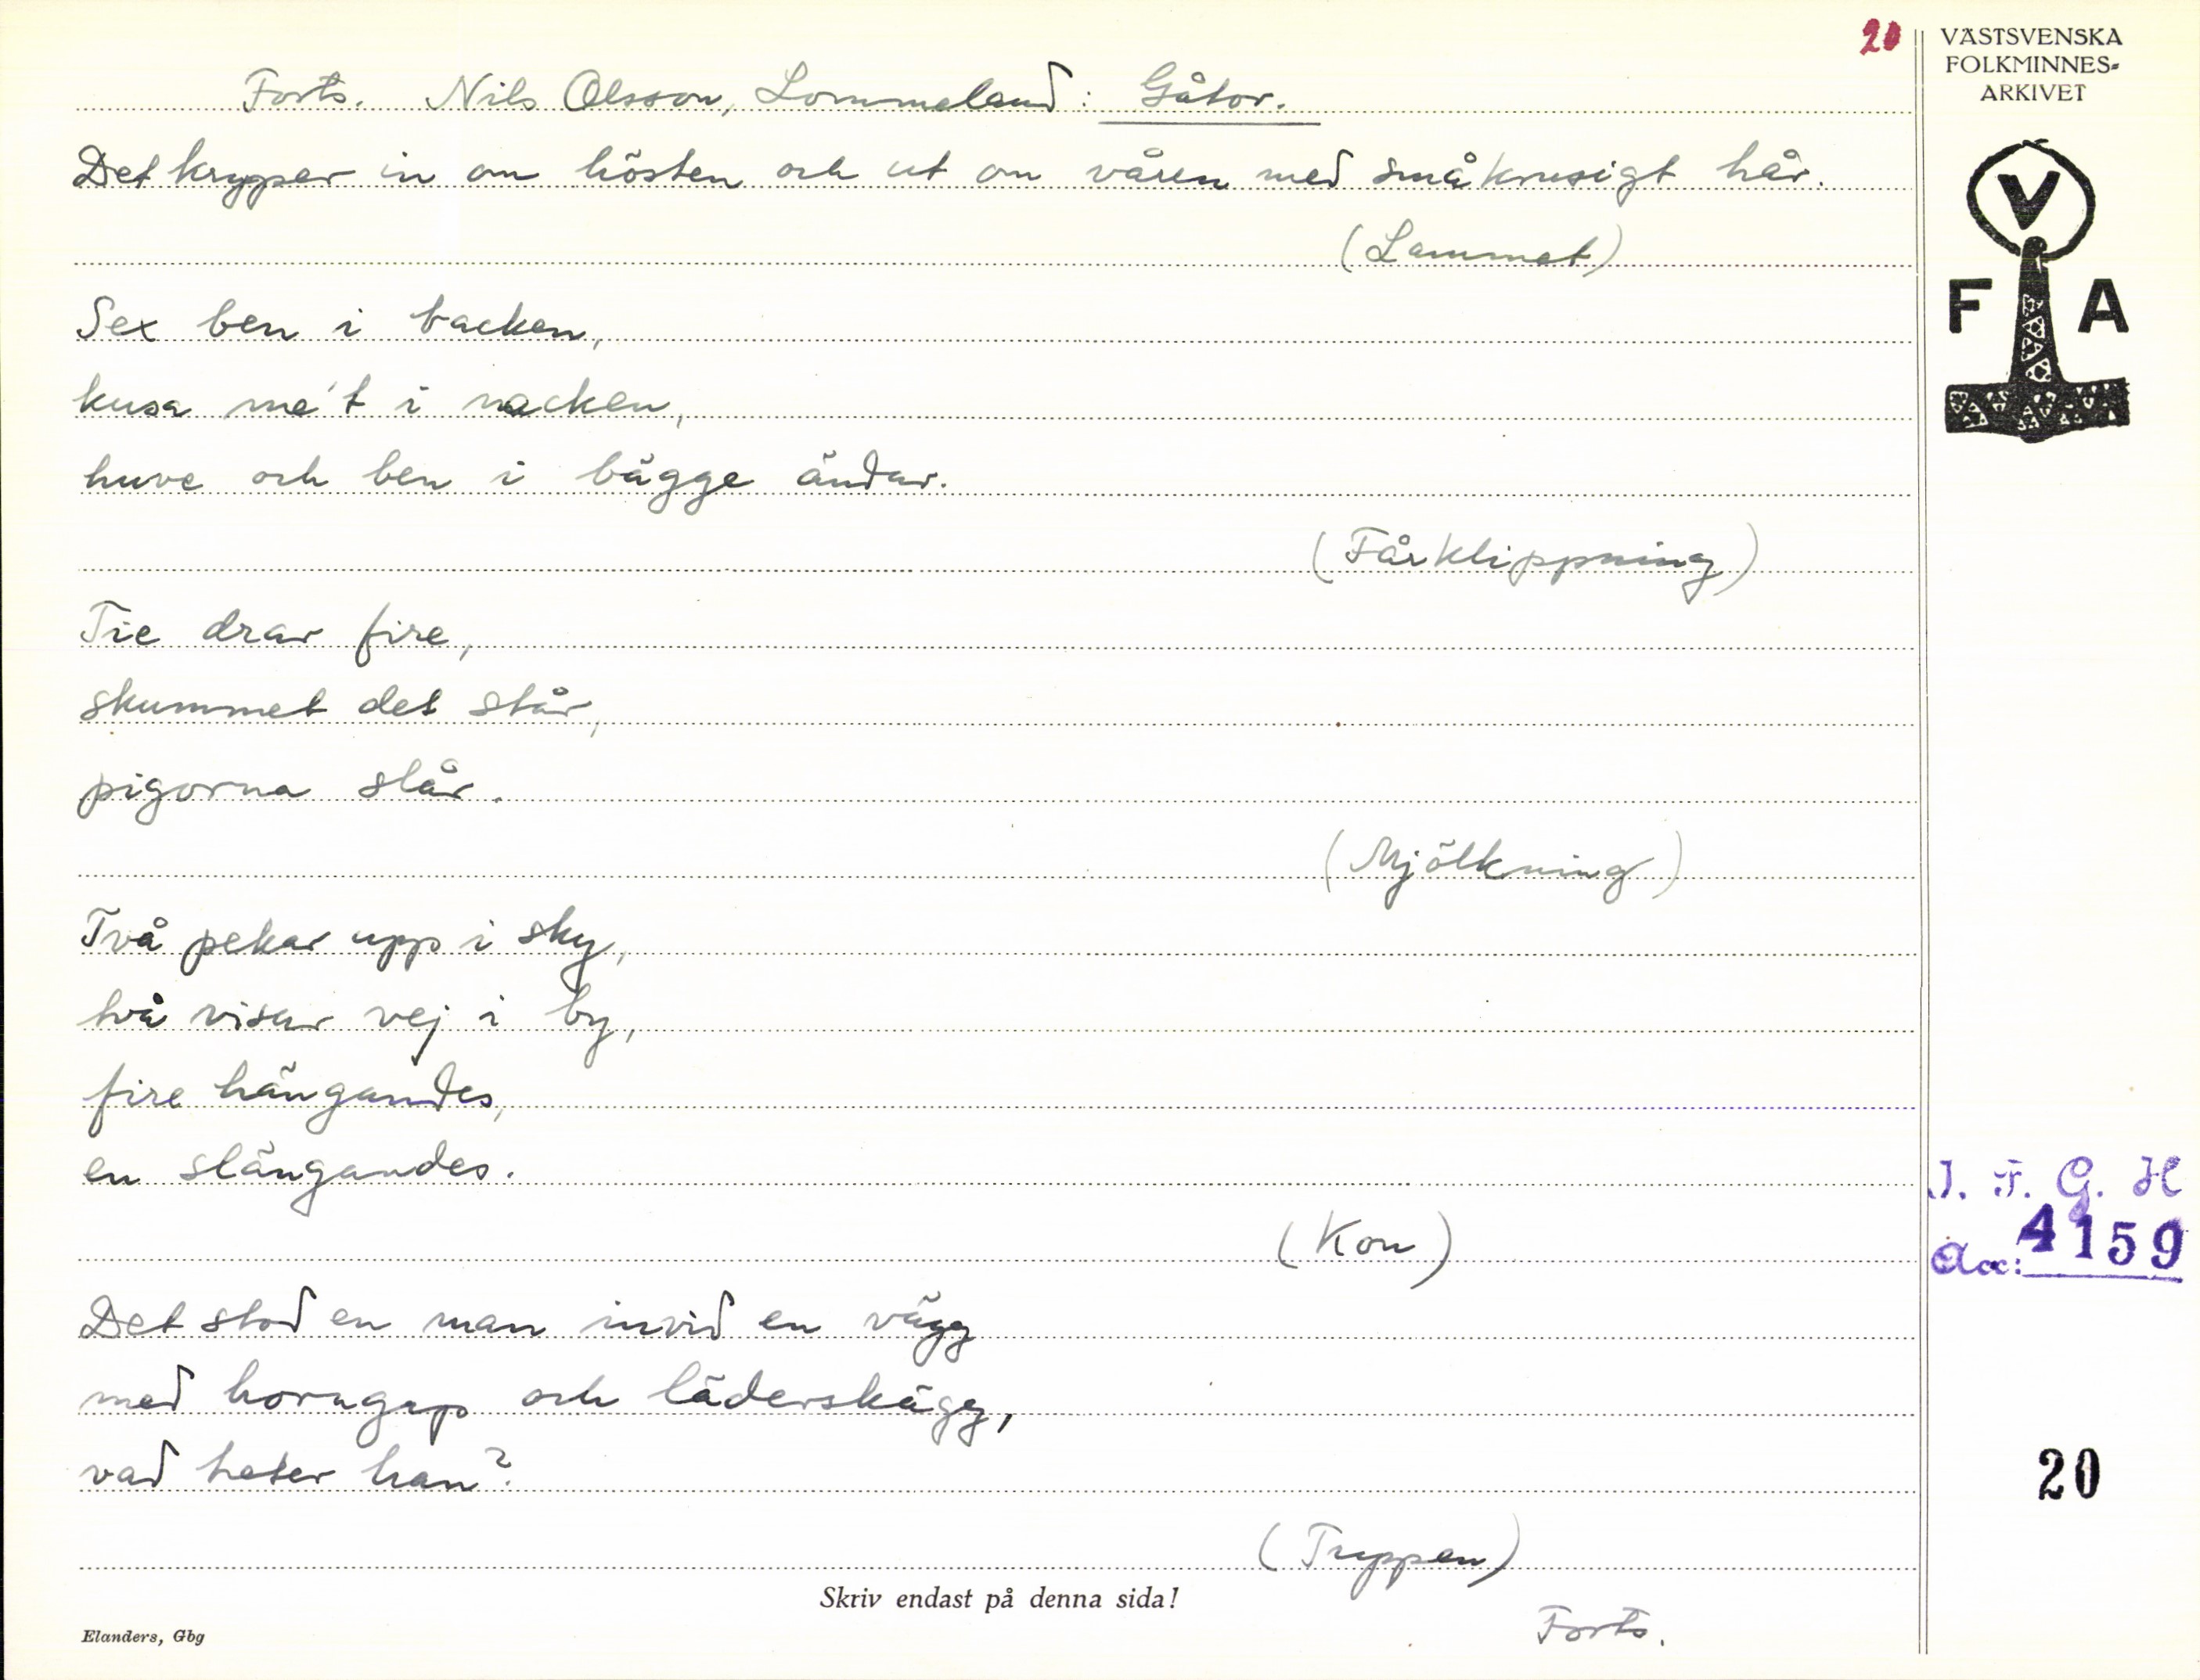 20
Forts. Nils Olsson, Lommeland: Gåtor.
Det kryper in om hösten och ut om våren med småkrusigt hår.
(Lammet)
Sex ben i backen,
kusa me't i nacken,
huve och ben i bägge ändar.
(Fårklippning)
Tie drar fire,
skummet det står,
pigorna slår.
(Mjölkning)
Två pekar upp i sky,
två visar vej i by,
fire hängandes,
en slängandes.
(Kon)
Det stod en man invid en vägg
med horngap och läderskägg,
vad heter han?
(Tuppen)
Forts.
Skriv endast på denna sida!
Elanders, Gbg
VÄSTSVENSKA
FOLKMINNES-
ARKIVET
V
F A
I. F. G. H
Acc: 4159
20